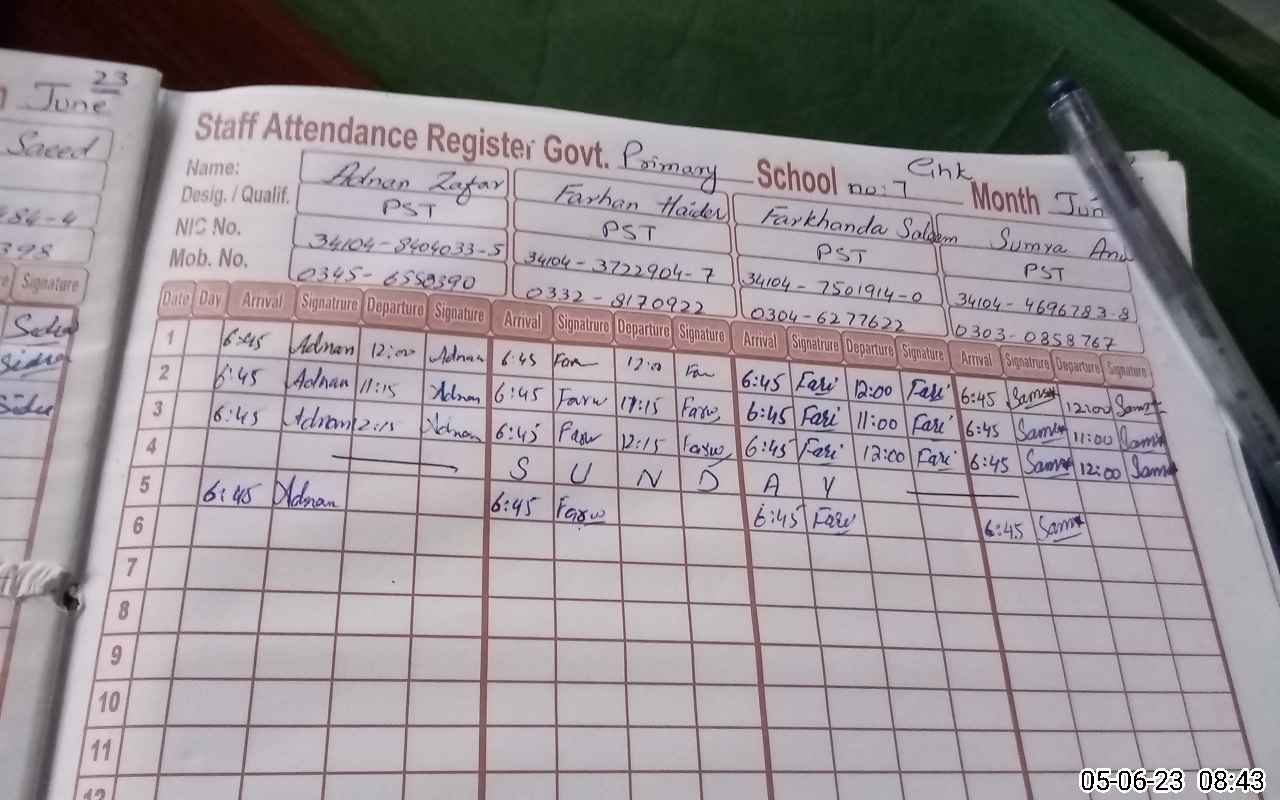 23
June
Staff Attendance Register Govt. Primary School no: 7 Ghk Month Jun
Saeed
Name: Adnan Zafar Farhan Haider Farkhanda Saleem Sumra
Desig. / Qualif. PST PST PST PST
484-4
NIC No. 34104-8404033-5 34104-3722904-7 34104-7501914-0 34104-4696783-8
398
Mob. No. 0345-6558390 0332-8170922 0304-6277622 0303-0858767
Signature
Date Day Arrival Signatrure Departure Signature Arrival Signatrure Departure Signature Arrival Signatrure Departure Signature Arrival Signatrure Departure Signature
1 6:45 Adnan 12:00 Adnan 6:45 Far 12:0 Fa 6:45 Fari 12:00 Fari 6:45 Sam 12:00 Sam
2 6:45 Adnan 11:15 Adnan 6:45 Farw 11:15 Farw 6:45 Fari 11:00 Fari 6:45 Sam 11:00 Sam
3 6:45 Adnan 12:15 Adnan 6:45 Farw 12:15 Farw 6:45 Fari 12:00 Fari 6:45 Sam 12:00 Sam
4 S U N D A Y
5 6:45 Adnan 6:45 Farw 6:45 Fari 6:45 Sam
6
7
8
9
10
11
12
05-06-23 08:43